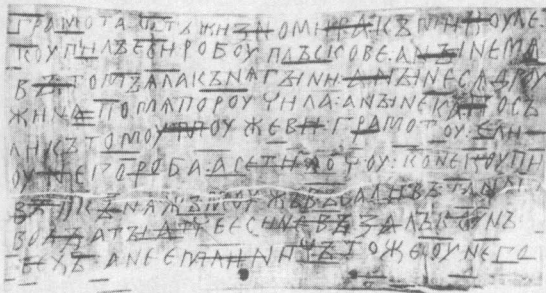 ГРАМОТА : ѠТЪ ЖИЗНОМИРА КЪ МИКОУЛЕ
КОУПИЛЪ ЕСИ РОБОУ ПЛЪСКОВЕ А НЫНЕ МѦ
ВЪ ТОМЪ ѦЛА КЪНѦГЫНИ А НЫНЕ СѦ ДРОУ
ЖИНА ПО МѦ ПОРОУЧИЛА А НЫНЕ КА ПОСЪ
ЛИ КЪ ТОМОУ МОУЖЕВИ ГРАМОТОУ ЕЛИ
ОУ НЕГО РОБА А СЕ ТИ ХОЧОУ КОНЕ КОУПИ
ВЪ И КЪНѦЖЪ МОУЖЪ ВЪСАДИВЪ ТА НА СЪ
ВОДЫ А ТЫ АТЧЕ ЕСИ НЕ ВЪЗАЛЪ КОУНЪ
ТЕХЪ А НЕ ЕМЛИ НИЧЪТО ЖЕ ОУ НЕГО